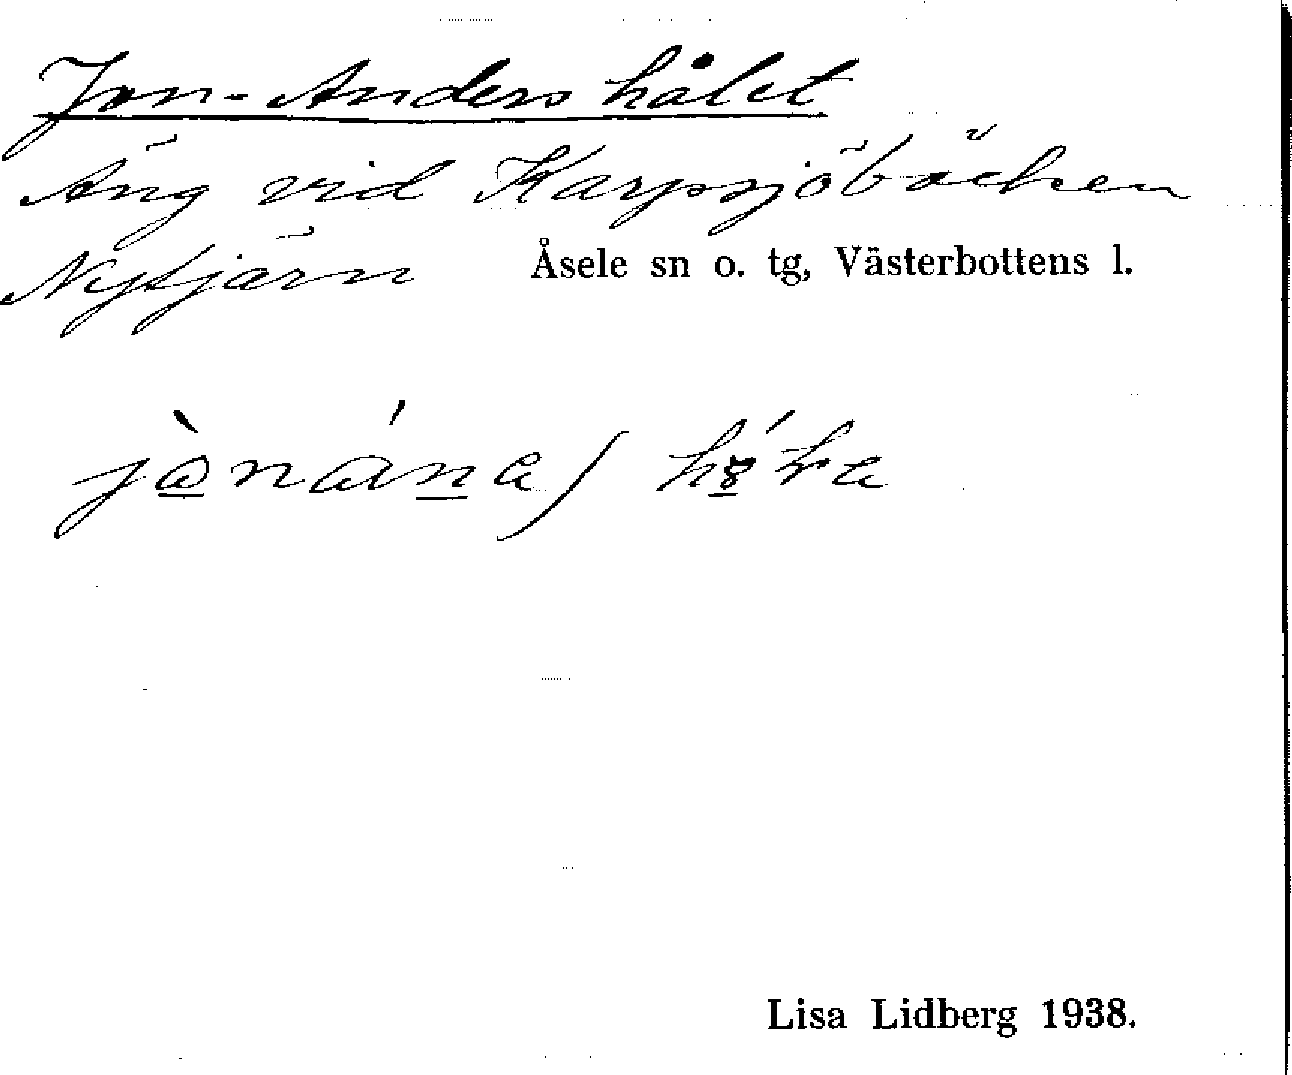 Jon-Anders hålet
Äng vid Karpsjöbäcken
Nytjärn Åsele sn o. tg, Västerbottens l.
Lisa Lidberg 1938.